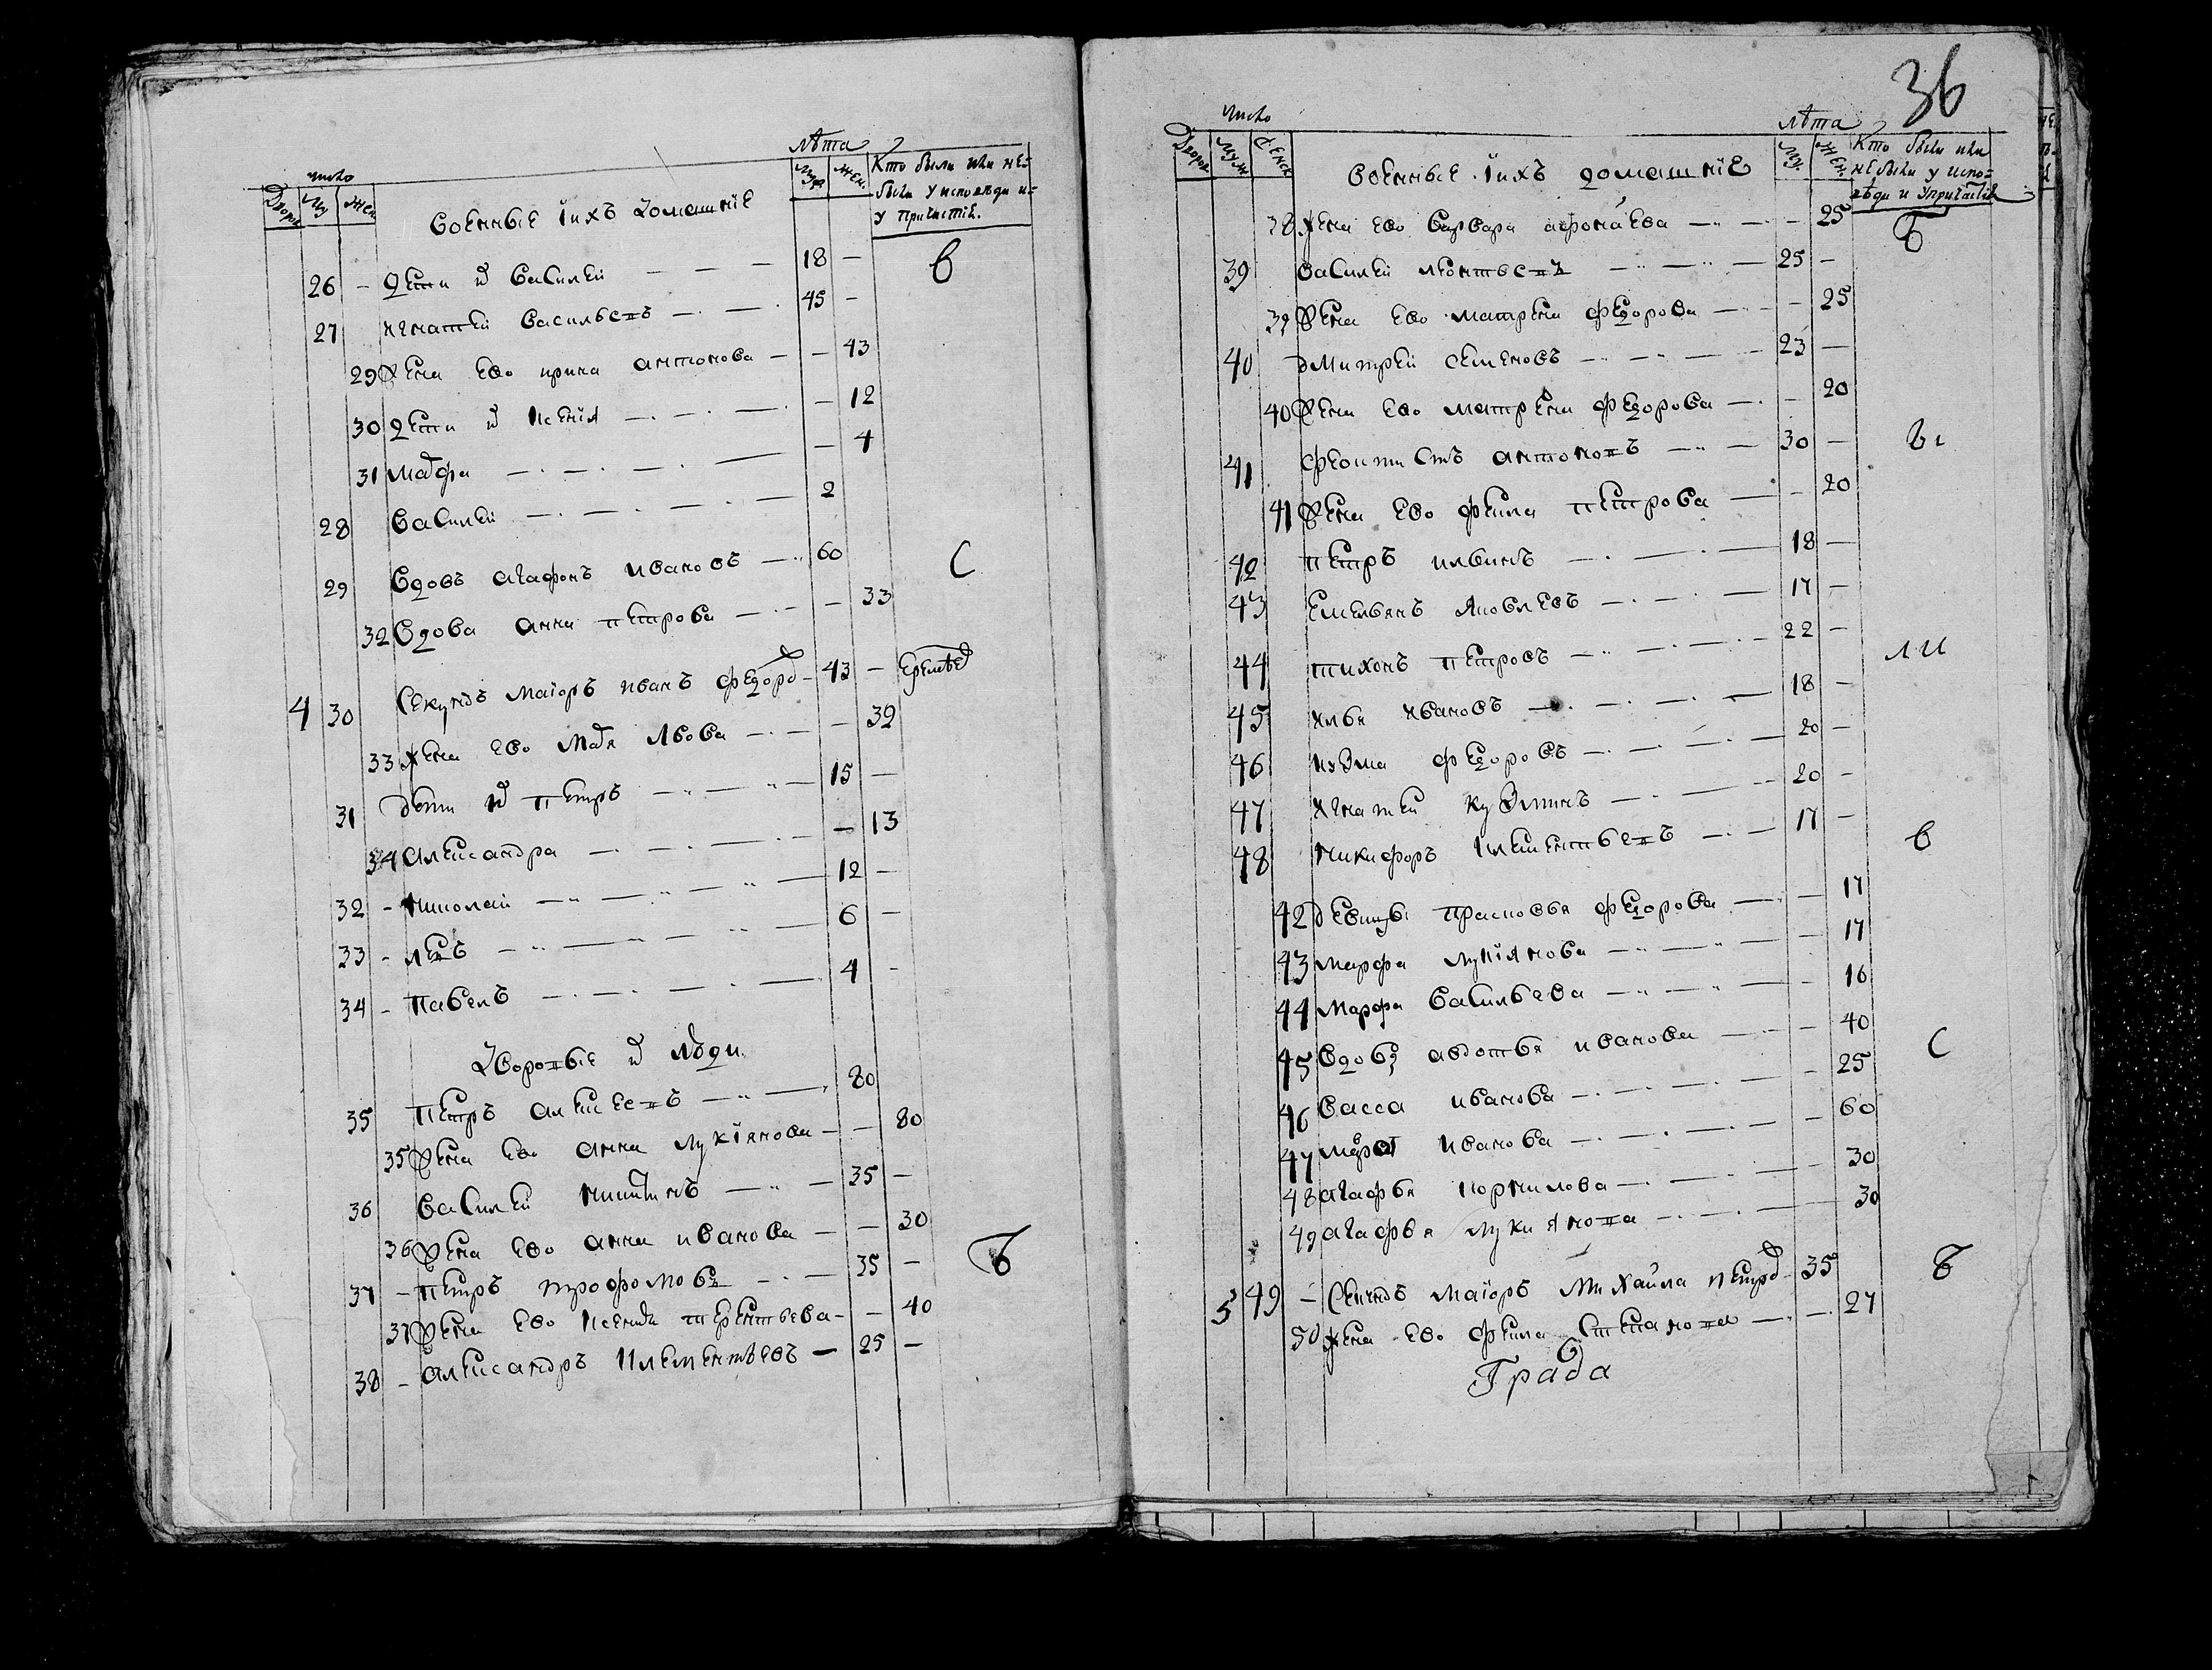 число
лѣта
Дворов
Му
Жен
Военные ихъ домашнiе
Муж
Жен.
Кто были или не были у исповѣди и у причастiя.
26 - Дети и Василей — — — 18 -
в
27 Игнатей Васильевъ — 45 -
29 Жена ево Ирина Антонова — - 43
30 Дети и Ксенiя — - 12
31 Марфа — - 4
28 Василей — 2
29 Вдовъ Агафонъ Ивановъ — 60
С
32 Вдова Анна Петрова — - 33
4 30 Секундъ маiоръ Иванъ Федоров - 43 - Еремѣев
33 Жена ево Марья Львова — - 39
31 Дети и Петръ — 15 —
34 Александра — - 13
32 - Николай — 12 -
33 - Левъ — 6 -
34 - Павелъ — 4 -
Дворовые и люди
35 Петръ Алексеевъ — 80
35 Жена ево Анна Лукiянова - - 80
36 Василей Никитинъ — 35 -
36 Жена ево Анна Иванова - - 30
37 - Петръ Трофомовъ — 35 -
Б
37 Жена ево Ксенiя Терентьева - - 40
38 - Александръ Клементьевъ — 25 -
36
число
лѣта
Дворов
Муж
Женск
Военные ихъ домашнiе
Му.
Жен.
Кто были или не были у исповѣди и у причастiя
38 Жена ево Варвара Афонаева — - 25
Б
39 Василей Леонтьевъ — 25 -
39 Жена ево Матрена Федорова — - 25
40 Дмитрей Семеновъ — 23 —
40 Жена ево Матрена Федорова — - 20
41 Феоктистъ Антоновъ — 30 —
ы
41 Жена ево Фекла Петрова — - 20
42 Петръ Ильинъ — 18 —
43 Емельянъ Яковлевъ — 17 -
44 Тихонъ Петровъ — 22 -
ли
45 Илья Ивановъ — 18 -
46 Кузма Федоровъ — 20 -
47 Игнатей Кузминъ — 20 -
48 Никифоръ Клементьевъ — 17 -
в
42 Девицы Прасковья Федорова — 17
43 Марфа Лукiянова — - 17
44 Марфа Васильева — - 16
45 Вдовы Авдотья Иванова — - 40
С
46 Васса Иванова — - 25
47 Иванова — - 60
48 Агафья Корнилова — - 30
49 Агафья Лукиянова — 30
5 49 - Секундъ маiоръ Михайла Петров - 35
Б
50 Жена ево Фекла Степанова — 27
Града